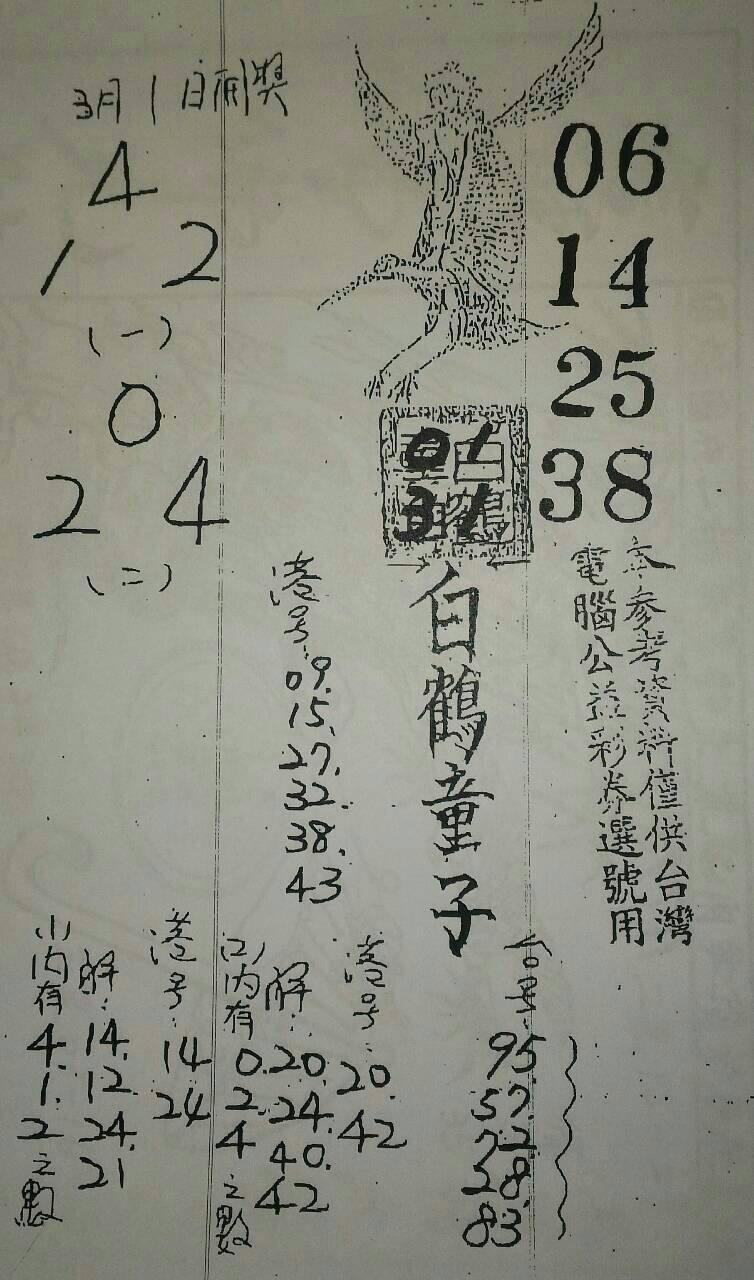 3月1日開獎
4
1 2
(一)
0
2 4
(二)
06
14
25
38
01
31
白鶴童子
本參考資料僅供台灣
電腦公益彩券選號用
港号:
09.
15.
27.
32.
38.
43
台号:
95
57.
72.
28.
83
港号:
20.
42
(二)内有
0.
2.
4
之數
解:
20.
24.
40.
42
港号:
14
24
(一)内有
4.
1.
2
之數
解:
14.
12.
24.
21